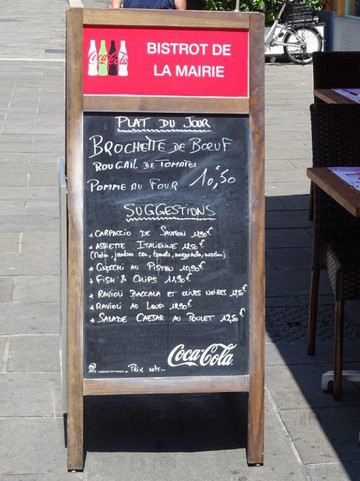 Coca-Cola
BISTROT DE
LA MAIRIE
PLAT DU JOUR
BROCHETTE DE BŒUF
ROUGAIL DE TOMATES
POMME AU FOUR 10,50
SUGGESTIONS
CARPACCIO DE SAUMON
ASSIETTE ITALIENNE
GNOCCHI AU PISTOU 10,90€
FISH & CHIPS 11,90€
RAVIOLI BACCALA ET OLIVES NOIRES
RAVIOLI AU LOUP
SALADE CAESAR AU POULET 12,50€
Coca-Cola
Prix nets